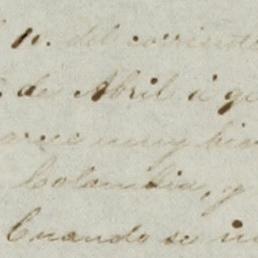 11. del corriente
de Abril á q
muy bien
Colombia, y
Cuando se in